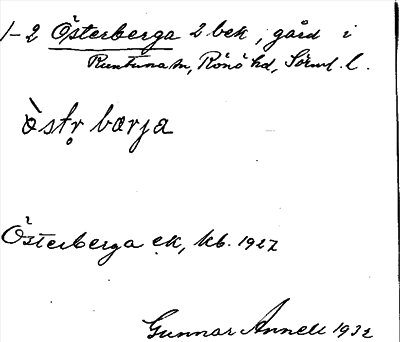 1-2 Österberga 2 bek, gård i
Runtuna sn, Rönö hd, Sörml. l.
ò̀str̥ bærja
Österberga ek, kb. 1927
Gunnar Annell 1932